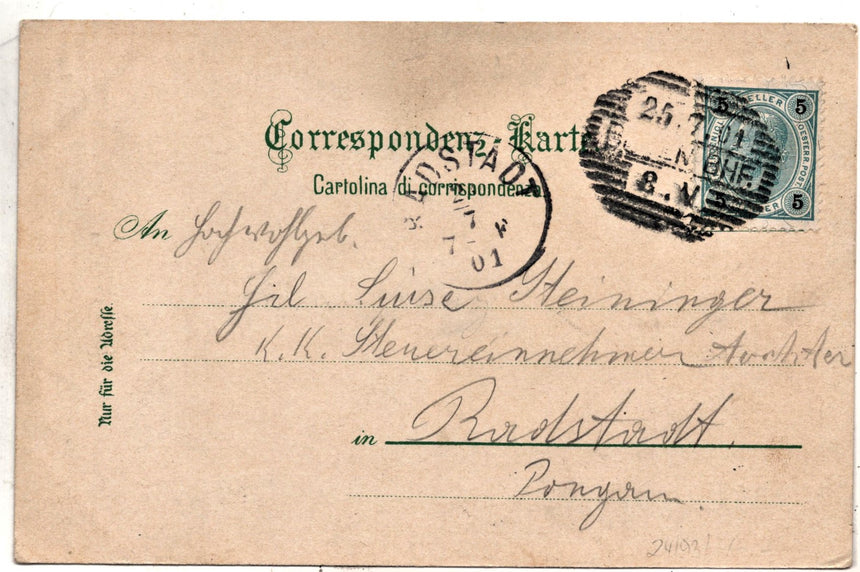 Correspondenz-Karte
Cartolina di corrispondenza.
25.7.01
8.V
5 HELLER 5
OESTERR. POST
5 5
RADSTADT
7 01
An Hochwohlgeb.
Frl Luise Steininger
K. K. Steuereinnehmers Tochter
in Radstadt.
Pongau
Nur für die Adresse